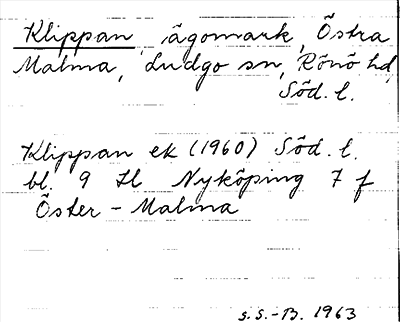 Klippan ägomark, Östra
Malma, Ludgo sn, Rönö hd,
Söd. l.
Klippan ek (1960) Söd. l.
bl. 9 Hl Nyköping 7 f
Öster-Malma
S.S.-B. 1963